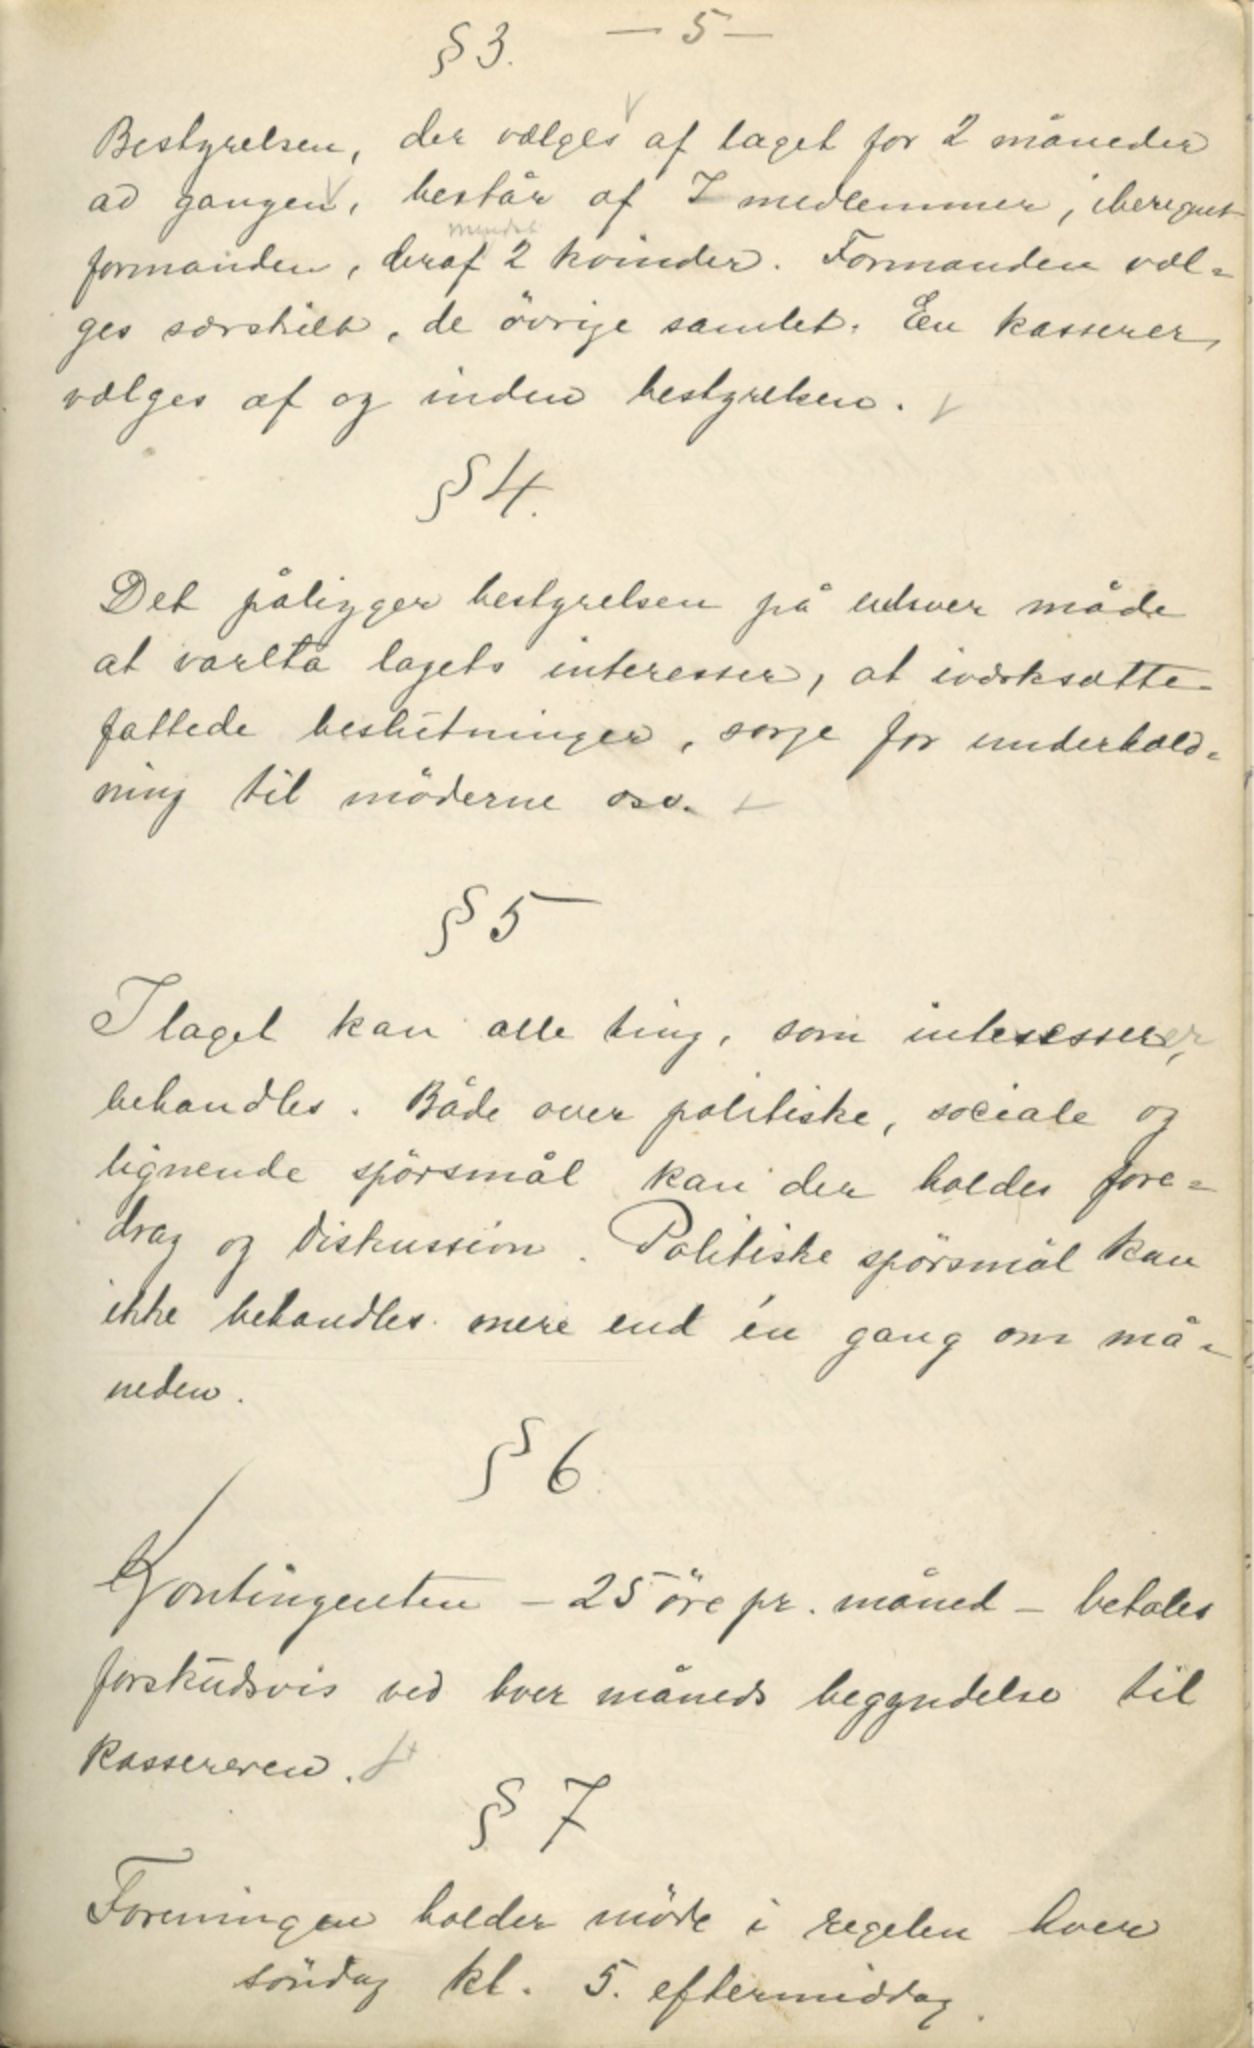 § 3. — 5 —
Bestyrelsen, der vælges af laget for 2 måneder
ad gangen, består af 7 medlemmer, iberegnet
mindst
formanden, deraf 2 kvinder. Formanden væl-
ges særskilt, de övrige samlet. En kasserer
vælges af og inden bestyrelsen.
§ 4.
Det påligger bestyrelsen på enhver måde
at vareta lagets interesser, at iværksætte
fattede beslutninger, sørge for underhold-
ning til möderne osv.
§ 5
I laget kan alle ting, som interesserer,
behandles. Både over politiske, sociale og
lignende spörsmål kan der holdes fore-
drag og diskussion. Politiske spörsmål kan
ikke behandles mere end én gang om må-
neden.
§ 6
Kontingenten – 25 öre pr. måned – betales
forskudsvis ved hver måneds begyndelse til
kassereren.
§ 7
Foreningen holder möde i regelen hver
söndag kl. 5. eftermiddag.